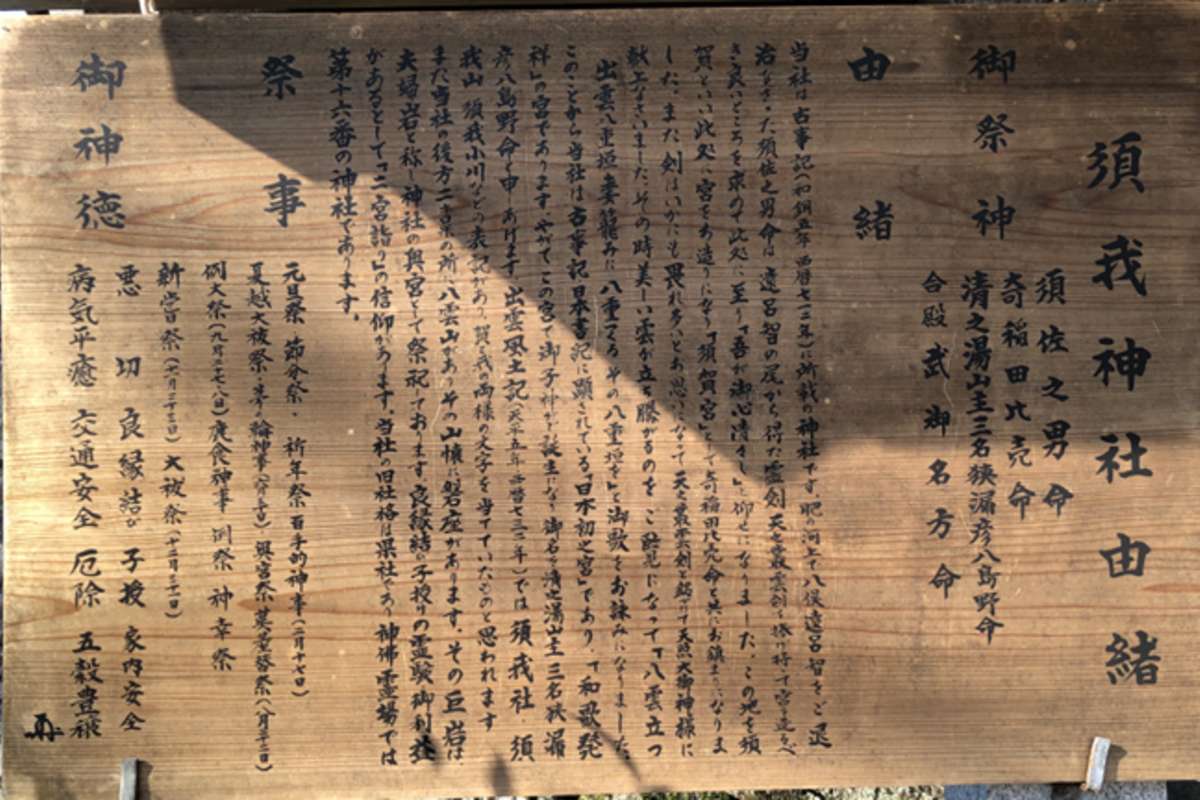 須我神社由緒
御祭神
須佐之男命
奇稲田比売命
清之湯山主三名狭漏彦八島野命
合殿 武御名方命
由緒
当社は古事記(和銅五年 西暦七一二年)に所載の神社です。肥の河上で八俣遠呂智をご退
治なさった須佐之男命は遠呂智の尾から得た霊剣 天之叢雲剣を捧げ持って宮造りべ
き良いところを求めて此処に至り「吾が御心清々し」と仰せになりました。この地を須
賀といい此処に宮をお造りになり「須賀宮」として奇稲田比売命と共にお鎮まりになりま
した。また剣はいかにも畏れ多いとお思いになって天之叢雲剣と銘して天照大御神様に
献上なさいました。その時美しい雲が立ち騰がるのを ご覧になって「八雲立つ
出雲八重垣妻籠みに 八重つくるその八重垣を」と御歌をお詠みになりました。
このことから当社は古事記日本書記に顕されている「日本初之宮」であり、「和歌発
祥」の宮であります。やがてこの宮で御子神がご誕生になり御名を清之湯山主三名狭漏
彦八島野命と申しあげます 出雲風土記(天平五年 西暦七三三年)では須我社 須
我山 須我小川などの表記があり 賀と我の両様の文字を当てていたものと思われます
また当社の後方二キロの所に八雲山がありその山懐に磐座があります。その巨岩は
夫婦岩と称し神社の奥宮として祭祀しております。良縁結び子授けの霊験御利益
があるとして「二宮詣り」の信仰があります。当社の旧社格は県社であり神佛霊場では
第十六番の神社であります。
祭事
元旦祭 節分祭・ 祈年祭 百手的神事(二月十七日)
夏越大祓祭・茅の輪神事(六月三十日) 奥宮祭 (八月二十二日)
例大祭(九月二十七、八日)鹿食神事 例祭 神幸祭
新嘗祭(十一月二十三日)大祓祭(十二月三十一日)
御神徳
悪切 良縁結び 子授 家内安全
病気平癒 交通安全 厄除 五穀豊穣